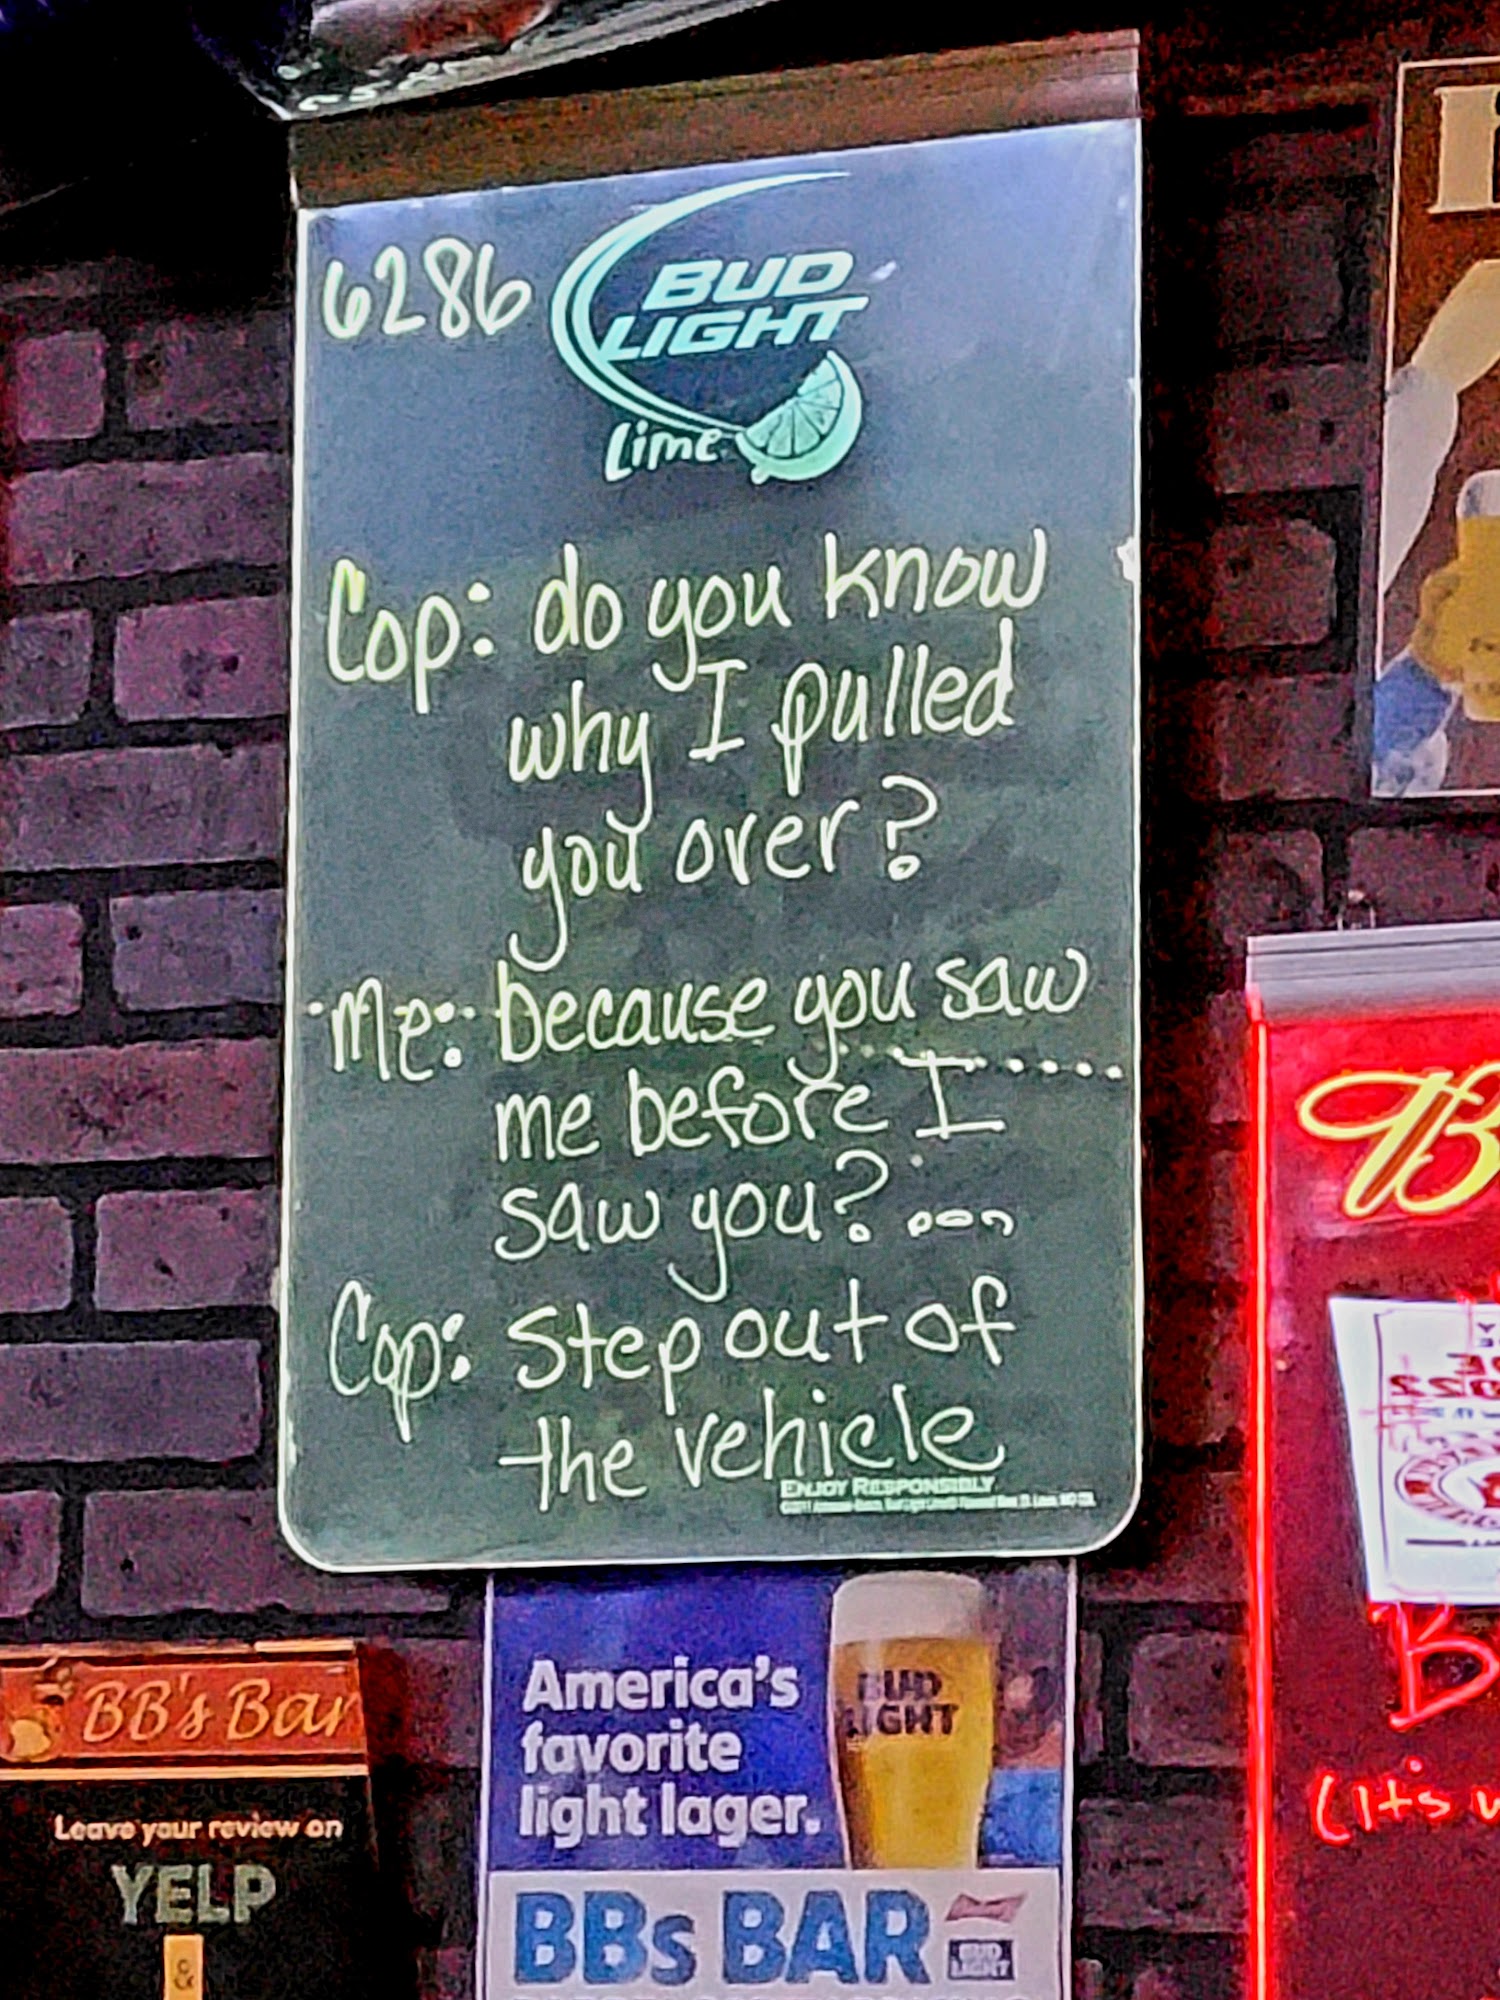 6286
BUD
LIGHT
Lime
Cop: do you know
why I pulled
you over?
Me: because you saw
me before I
saw you?
Cop: Step out of
the vehicle
ENJOY RESPONSIBLY
BB's Bar
Leave your review on
YELP
&
America's
favorite
light lager.
BUD
LIGHT
BBs BAR
BUD
LIGHT
B
(It's